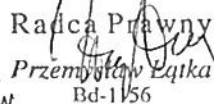 Radca Prawny
Przemysław Łątka
Bd-1156